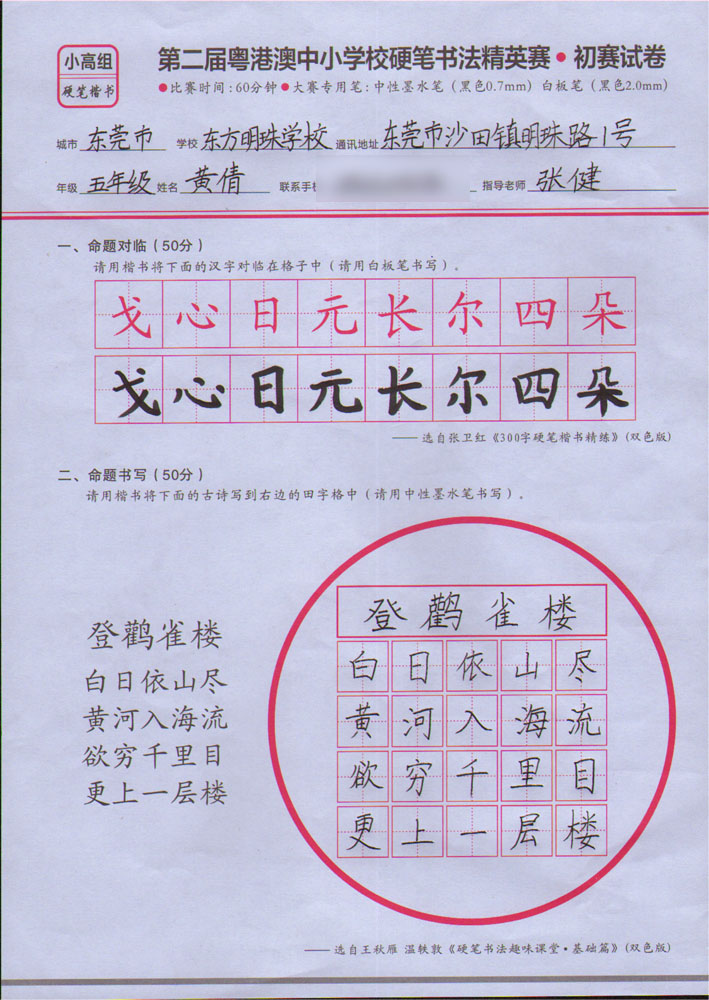 小高组
硬笔楷书
第二届粤港澳中小学校硬笔书法精英赛·初赛试卷
●比赛时间:60分钟●大赛专用笔:中性墨水笔(黑色0.7mm) 白板笔(黑色2.0mm)
城市 东莞市 学校 东方明珠学校 通讯地址 东莞市沙田镇明珠路1号
年级 五年级 姓名 黄倩 联系手机 指导老师 张健
一、命题对临(50分)
请用楷书将下面的汉字对临在格子中(请用白板笔书写)。
戈心日元长尔四朵
戈心日元长尔四朵
——选自张卫红《300字硬笔楷书精练》(双色版)
二、命题书写(50分)
请用楷书将下面的古诗写到右边的田字格中(请用中性墨水笔书写)。
登鹳雀楼
白日依山尽
黄河入海流
欲穷千里目
更上一层楼
登鹳雀楼
白日依山尽
黄河入海流
欲穷千里目
更上一层楼
——选自王秋雁 温轶敦《硬笔书法趣味课堂·基础篇》(双色版)